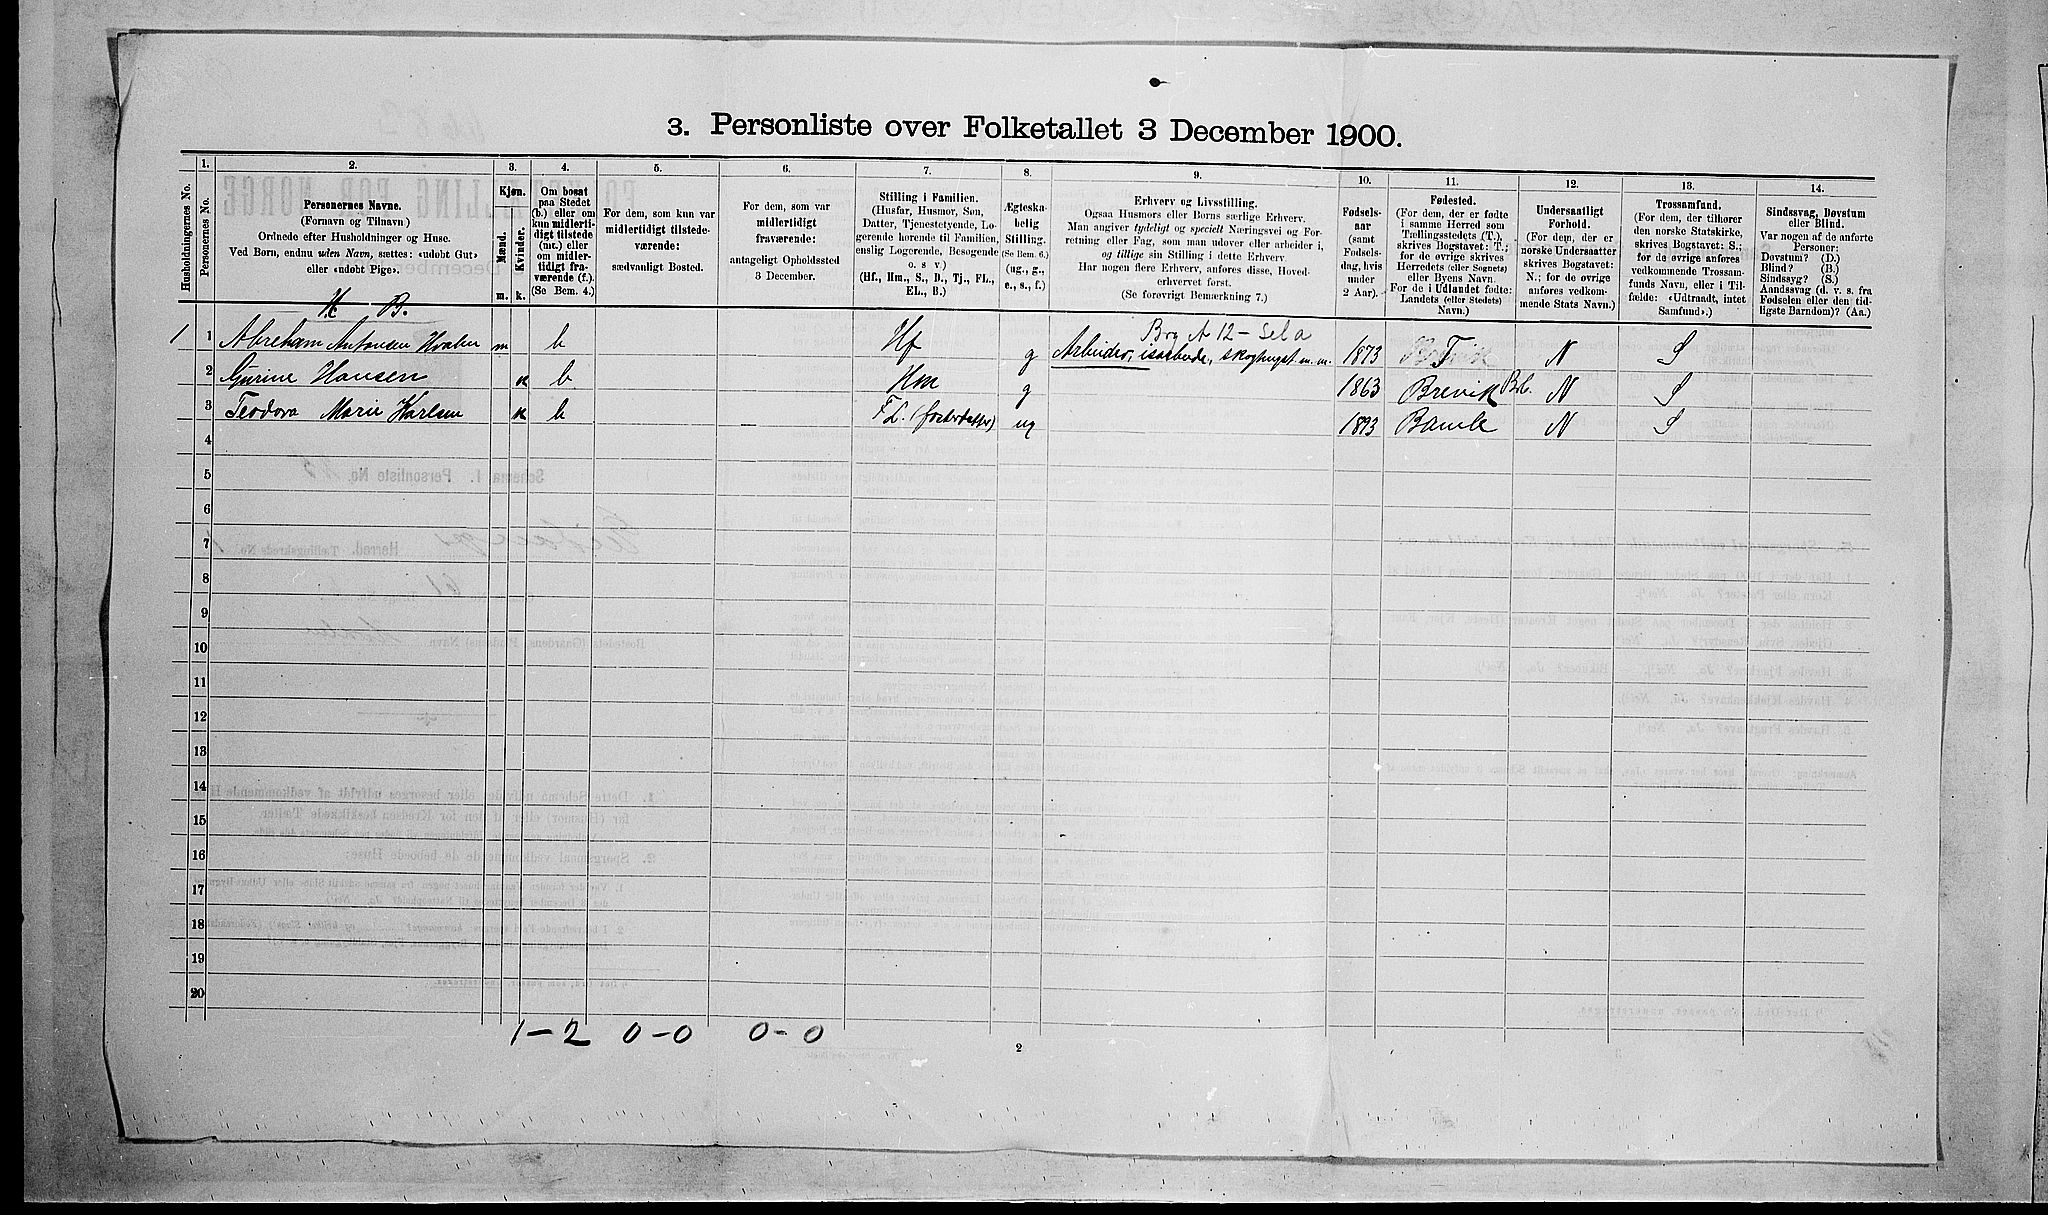 3. Personliste over Folketallet 3 December 1900.
Husholdningernes No.
1.
Personernes No.
2.
Personernes Navne.
(Fornavn og Tilnavn)
Ordnede efter Husholdninger og Huse.
Ved Børn, endnu uden Navn, sættes: «udøbt Gut»
eller «udøbt Pige».
3.
Kjøn.
Mænd.
Kvinder.
m.
k.
4.
Om bosat
paa Stedet
(b.) eller om
kun midlerti-
digt tilstede
(mt.) eller
om midler-
tidigt fra-
værende (f.).
(Se Bem. 4.)
5.
For dem, som kun var
midlertidigt tilstede-
værende:
sædvanligt Bosted.
6.
For dem, som var
midlertidigt
fraværende:
antageligt Opholdssted
3 December.
7.
Stilling i Familien.
(Husfar, Husmor, Søn,
Datter, Tjenestetyende, Lo-
gerende hørende til Familien,
enslig Logerende, Besøgende
o. s. v.)
(Hf., Hm., S., D., Tj., FL.,
EL., B.)
8.
Ægteska-
belig
Stilling.
(Se Bem. 6.)
(ug., g.,
e., s., f.)
9.
Erhverv og Livsstilling.
Ogsaa Husmors eller Børns særlige Erhverv.
Man angiver tydeligt og specielt Næringsvei og For-
retning eller Fag, som man udøver eller arbeider i,
og tillige sin Stilling i dette Erhverv.
Har nogen flere Erhverv, anføres disse, Hoved-
erhvervet først.
(Se forøvrigt Bemærkning 7.)
10.
Fødsels-
aar
(samt
Fødsels-
dag, hvis
under
2 Aar).
11.
Fødested.
(For dem, der er fødte
i samme Herred som
Tællingsstedets (T.),
skrives Bogstavet: T.;
for de øvrige skrives
Herredets (eller Sognets)
eller Byens Navn.
For de i Udlandet fødte:
Landets (eller Stedets)
Navn.)
12.
Undersaatligt
Forhold.
(For dem, der er
norske Undersaatter
skrives Bogstavet:
N.; for de øvrige
anføres vedkom-
mende Stats Navn.)
13.
Trossamfund.
(For dem, der tilhører
den norske Statskirke,
skrives Bogstavet: S.;
for de øvrige anføres
vedkommende Trossam-
funds Navn, eller i Til-
fælde: «Udtraadt, intet
Samfund».)
14.
Sindssvag, Døvstum
eller Blind.
Var nogen af de anførte
Personer:
Døvstum? (D.)
Blind? (B.)
Sindssyg? (S.)
Aandssvag (d. v. s. fra
Fødselen eller den tid-
ligste Barndom)? (Aa.)
H. B.
1 1 Abraham Antonsen Hvalen m b Hf g Arbeider, isarbeide, skoghugst m. m. 1873 T N S
2 Gurine Hansen k b Hm g 1863 Brevik N S
3 Teodora Marie Karlsen k b FL. (fosterdatter) ug 1893 Bamle N S
4
5
6
7
8
9
10
11
12
13
14
15
16
17
18
19
20
1 - 2 0 - 0 0 - 0
2